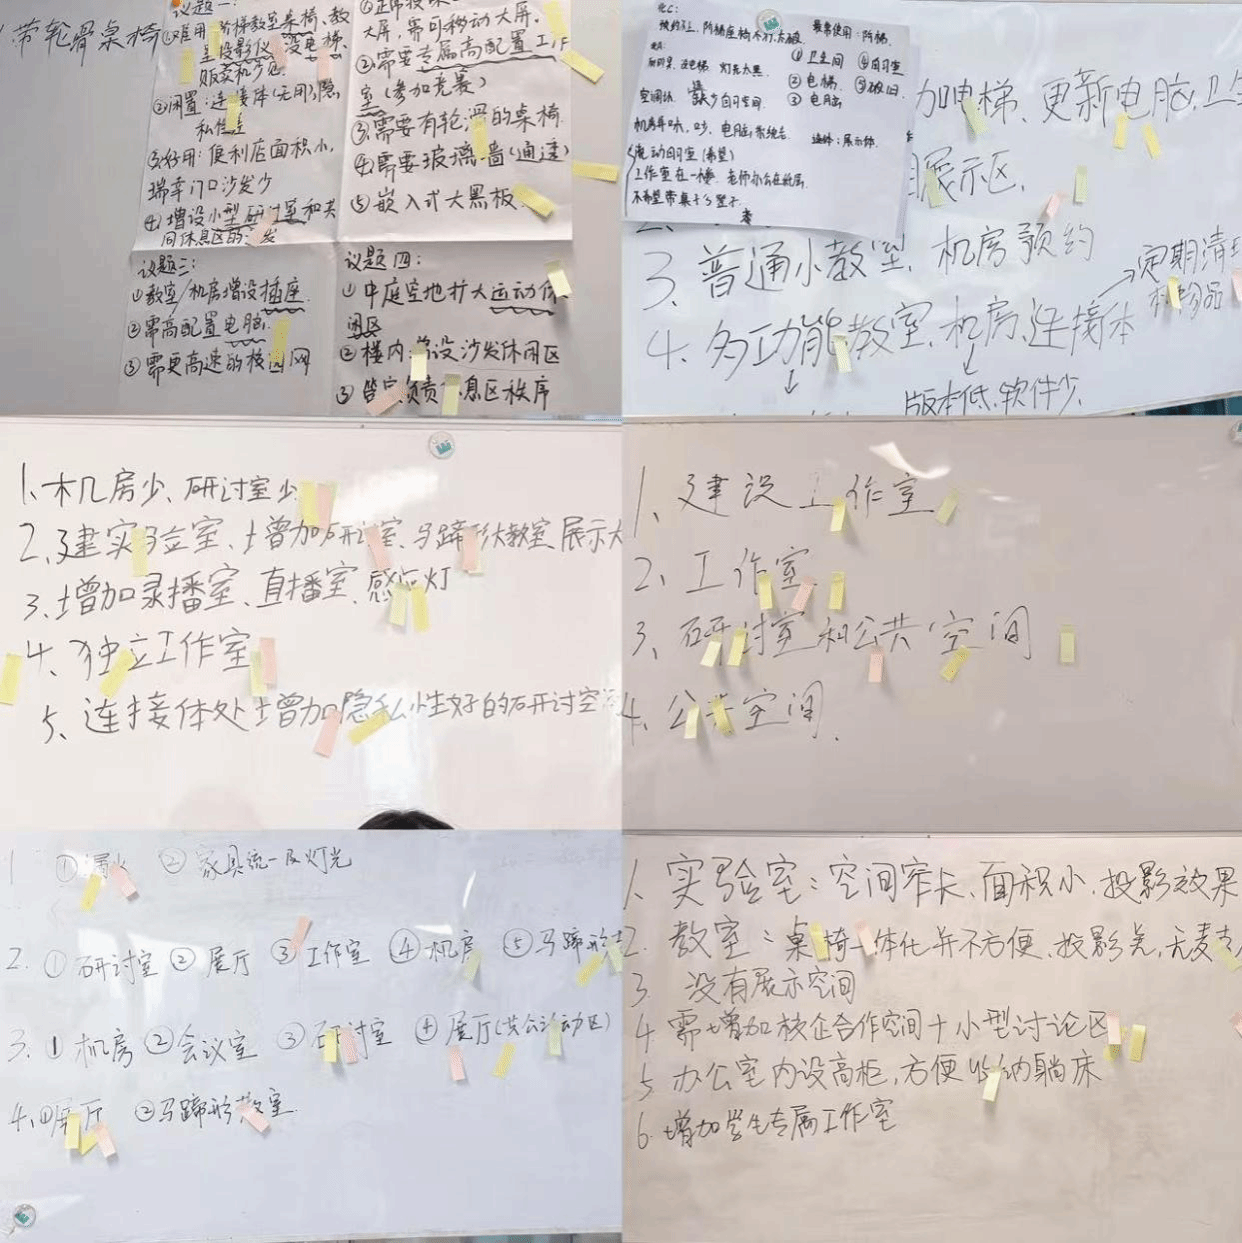 带轮滑桌椅
议题一:
①难用:阶梯教室桌椅、教
室投影仪、没电梯、
贩卖机少见
②闲置:连接体(无用),隐
私性差
③好用:便利店面积小,
瑞幸门口沙发少
④增设小型研讨室和共
同休息区的沙发
议题二:
①教室/机房增设插座.
②需高配置电脑.
③需更高速的校园网
大屏,需可移动大屏.
②需要专属高配置工作
室(参加竞赛)
③需要有轮滑的桌椅.
④需要玻璃墙(通透)
⑤嵌入式大黑板.
议题四:
①中庭空地扩大运动休
闲区
②楼内增设沙发休闲区
③ 负责 息区秩序
最常使用:阶梯.
①卫生间 ④自习室
②电梯. ⑤破旧.
③电脑
空间缺 缺少自习空间.
移动自习室(希望)
工作室在一楼. 老师办公在
加电梯.更新电脑.卫
展示区.
3、普通小教室、机房预约
4、多功能教室、机房、连接体
→定期清理
物品
版本低.软件少.
1、机房少、研讨室少
2、建实验室、增加研讨室、马蹄形教室、展示大
3、增加录播室、直播室、感应灯
4、独立工作室
5、连接体处增加隐私性好的研讨空
1、建设工作室
2、工作室
3、研讨室和公共空间
4、公共空间.
1 ①漏水 ②家具统一及灯光
2. ①研讨室 ②展厅 ③工作室 ④机房 ⑤马蹄形
3. ①机房 ②会议室 ③研讨室 ④展厅(共公活动区)
4. ①展厅 ②马蹄形教室.
1. 实验室:空间窄长、面积小.投影效果
2. 教室:桌椅一体化并不方便、投影差,无麦克
3. 没有展示空间
4 需增加校企合作空间+小型讨论区
5 办公室内设高柜,方便收纳躺床
6. 增加学生专属工作室